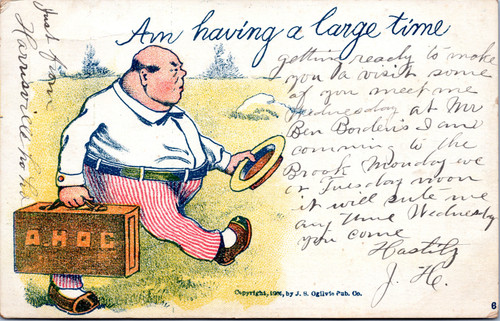 Am having a large time
Just from
Harrisville
getting ready to make
you a visit some
of you meet me
Wednesday at Mr
Ben Borden's I am
comming to the
Brook Monday eve
or Tuesday noon
it will sute me
any time Wednesday
you come
Hastily
J. H.
A.H.O.C
Copyright, 1906, by J. S. Ogilvie Pub. Co.
6